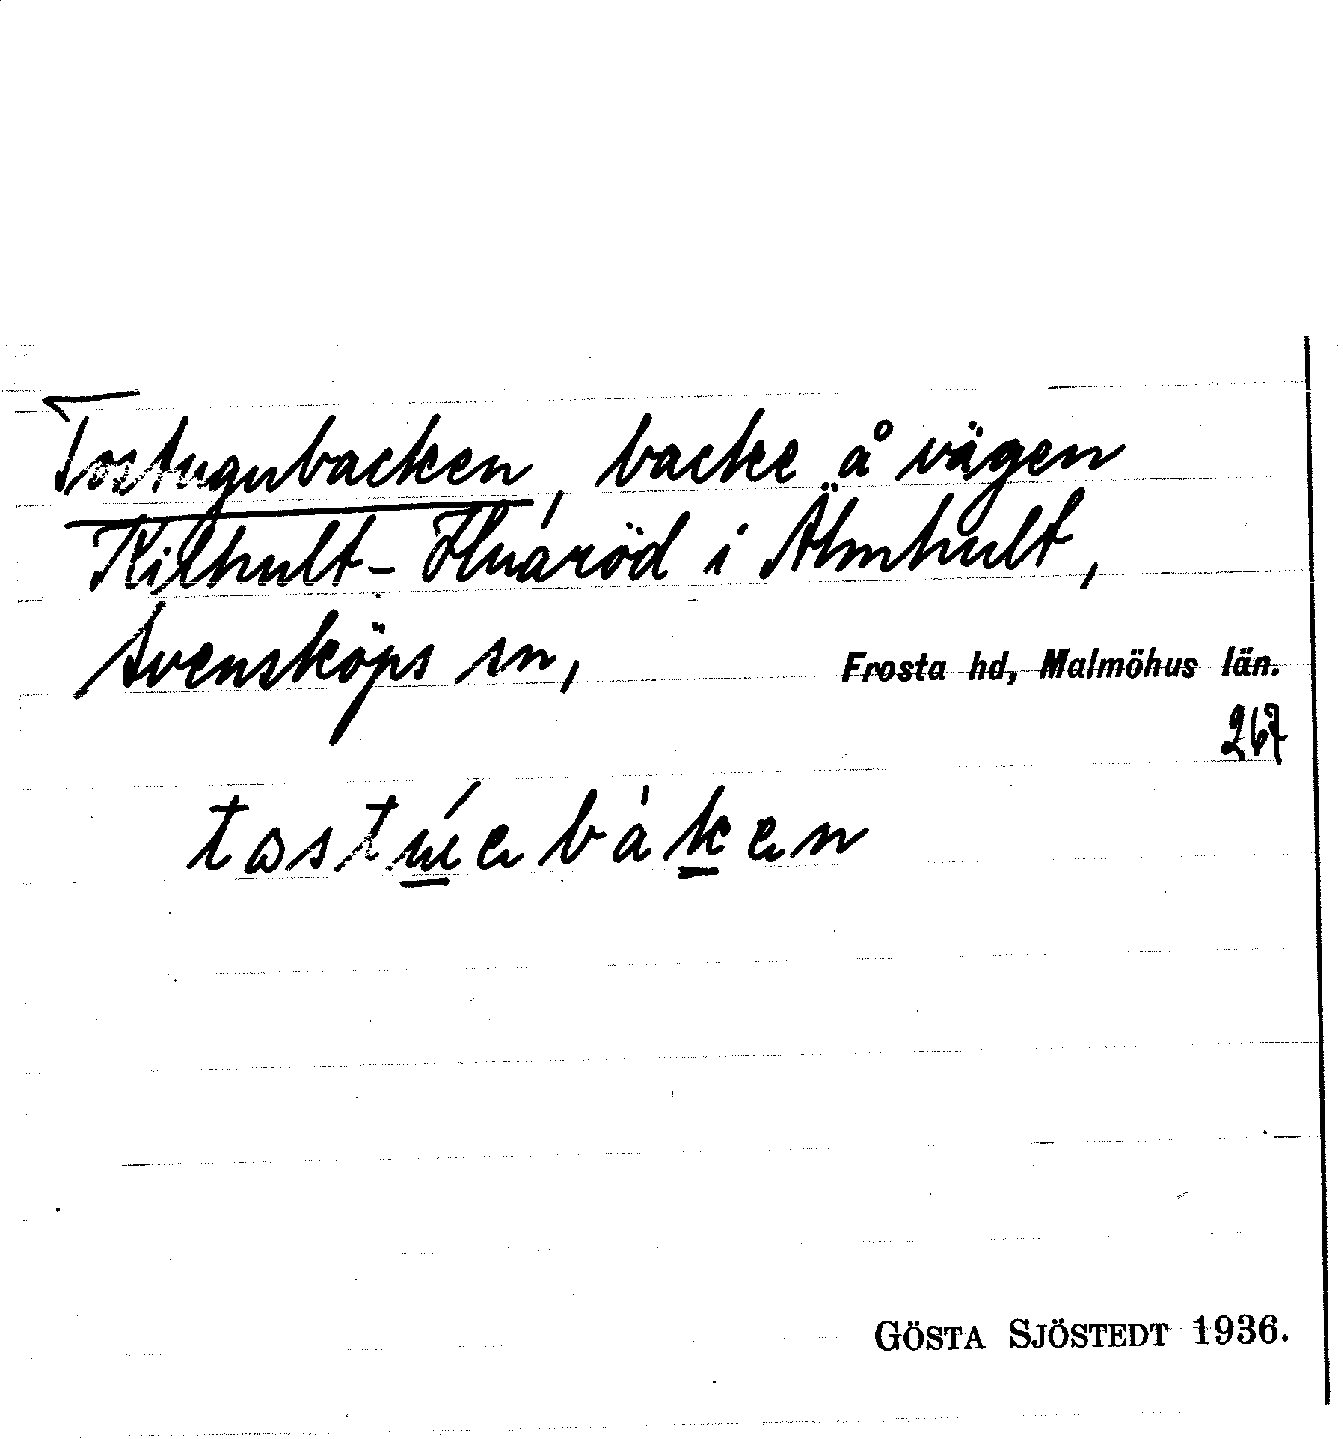 Tostugubacken, backe å vägen
Kilhult-Huaröd i Älmhult,
Svensköps sn, Frosta hd, Malmöhus län.
267
GÖSTA SJÖSTEDT 1936.